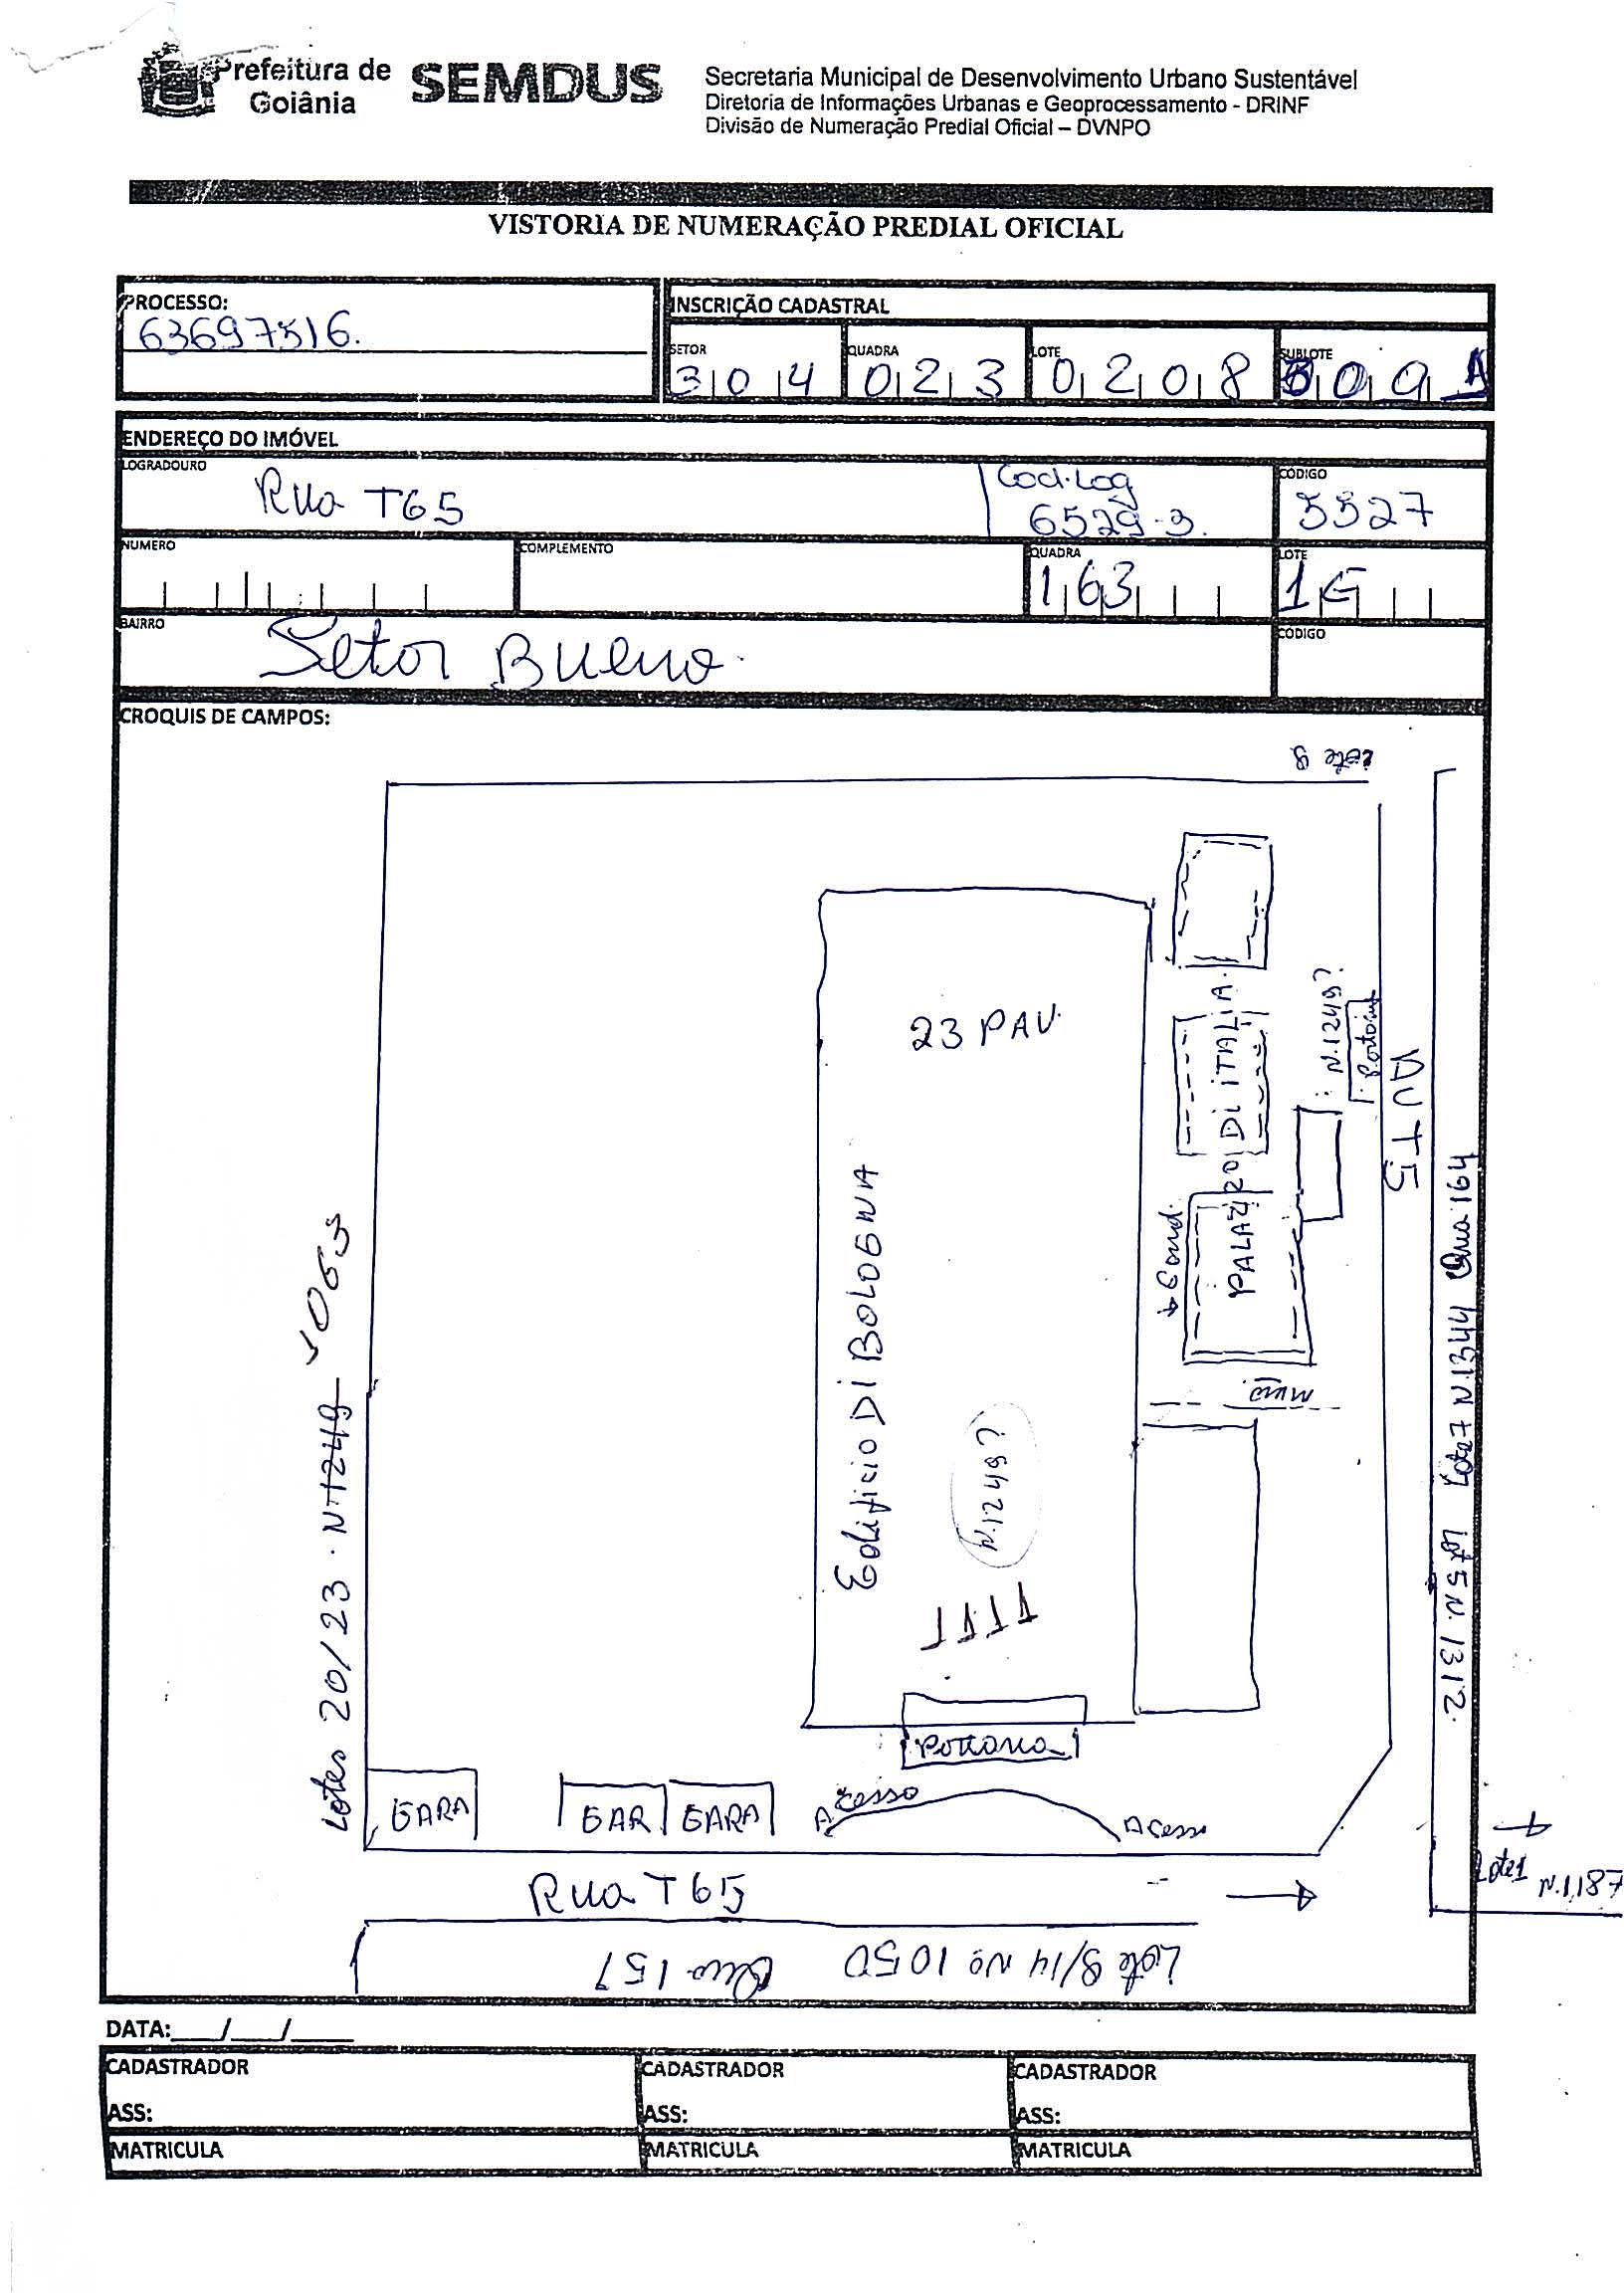 Prefeitura de
Goiânia
SEMDUS
Secretaria Municipal de Desenvolvimento Urbano Sustentável
Diretoria de Informações Urbanas e Geoprocessamento - DRINF
Divisão de Numeração Predial Oficial – DVNPO
VISTORIA DE NUMERAÇÃO PREDIAL OFICIAL
PROCESSO:
63697516.
INSCRIÇÃO CADASTRAL
SETOR
304
QUADRA
023
LOTE
0208
SUBLOTE
009
ENDEREÇO DO IMÓVEL
LOGRADOURO
Rua T65
Cod. Log
6529-3.
CÓDIGO
5527
NUMERO
COMPLEMENTO
QUADRA
163
LOTE
BAIRRO
Setor Bueno.
CÓDIGO
CROQUIS DE CAMPOS:
Lote 8
23 PAV.
Edificio Di BOLOGNA
N.1249?
TTTT
PALAZZO Di iTALIA.
Cond.
muro
N.1249?
Portaria
AV T5
Lote 7 N.1344 Qua. 164
Lot 5 N. 1312.
Lotes 20/23 . N.1249 1065
Portaria
GARA
GAR
GARA
Acesso
Acesso
Rua T65
Lote 1
N.1187
Lote 8/14 No. 1050 Qua 157
DATA:___/___/____
CADASTRADOR
ASS:
MATRICULA
CADASTRADOR
ASS:
MATRICULA
CADASTRADOR
ASS:
MATRICULA